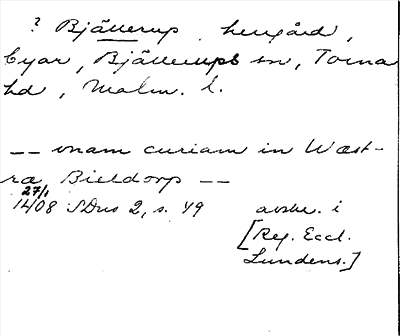 ? Bjällerup, herrgård,
Byar, Bjällerups sn, Torna
hd, Malm. l.
-- vnam curiam in Wæst-
ra Bieldorp --
27/1
1408 SDns 2, s. 49 avskr. i
[Reg. Eccl.
Lundens.]